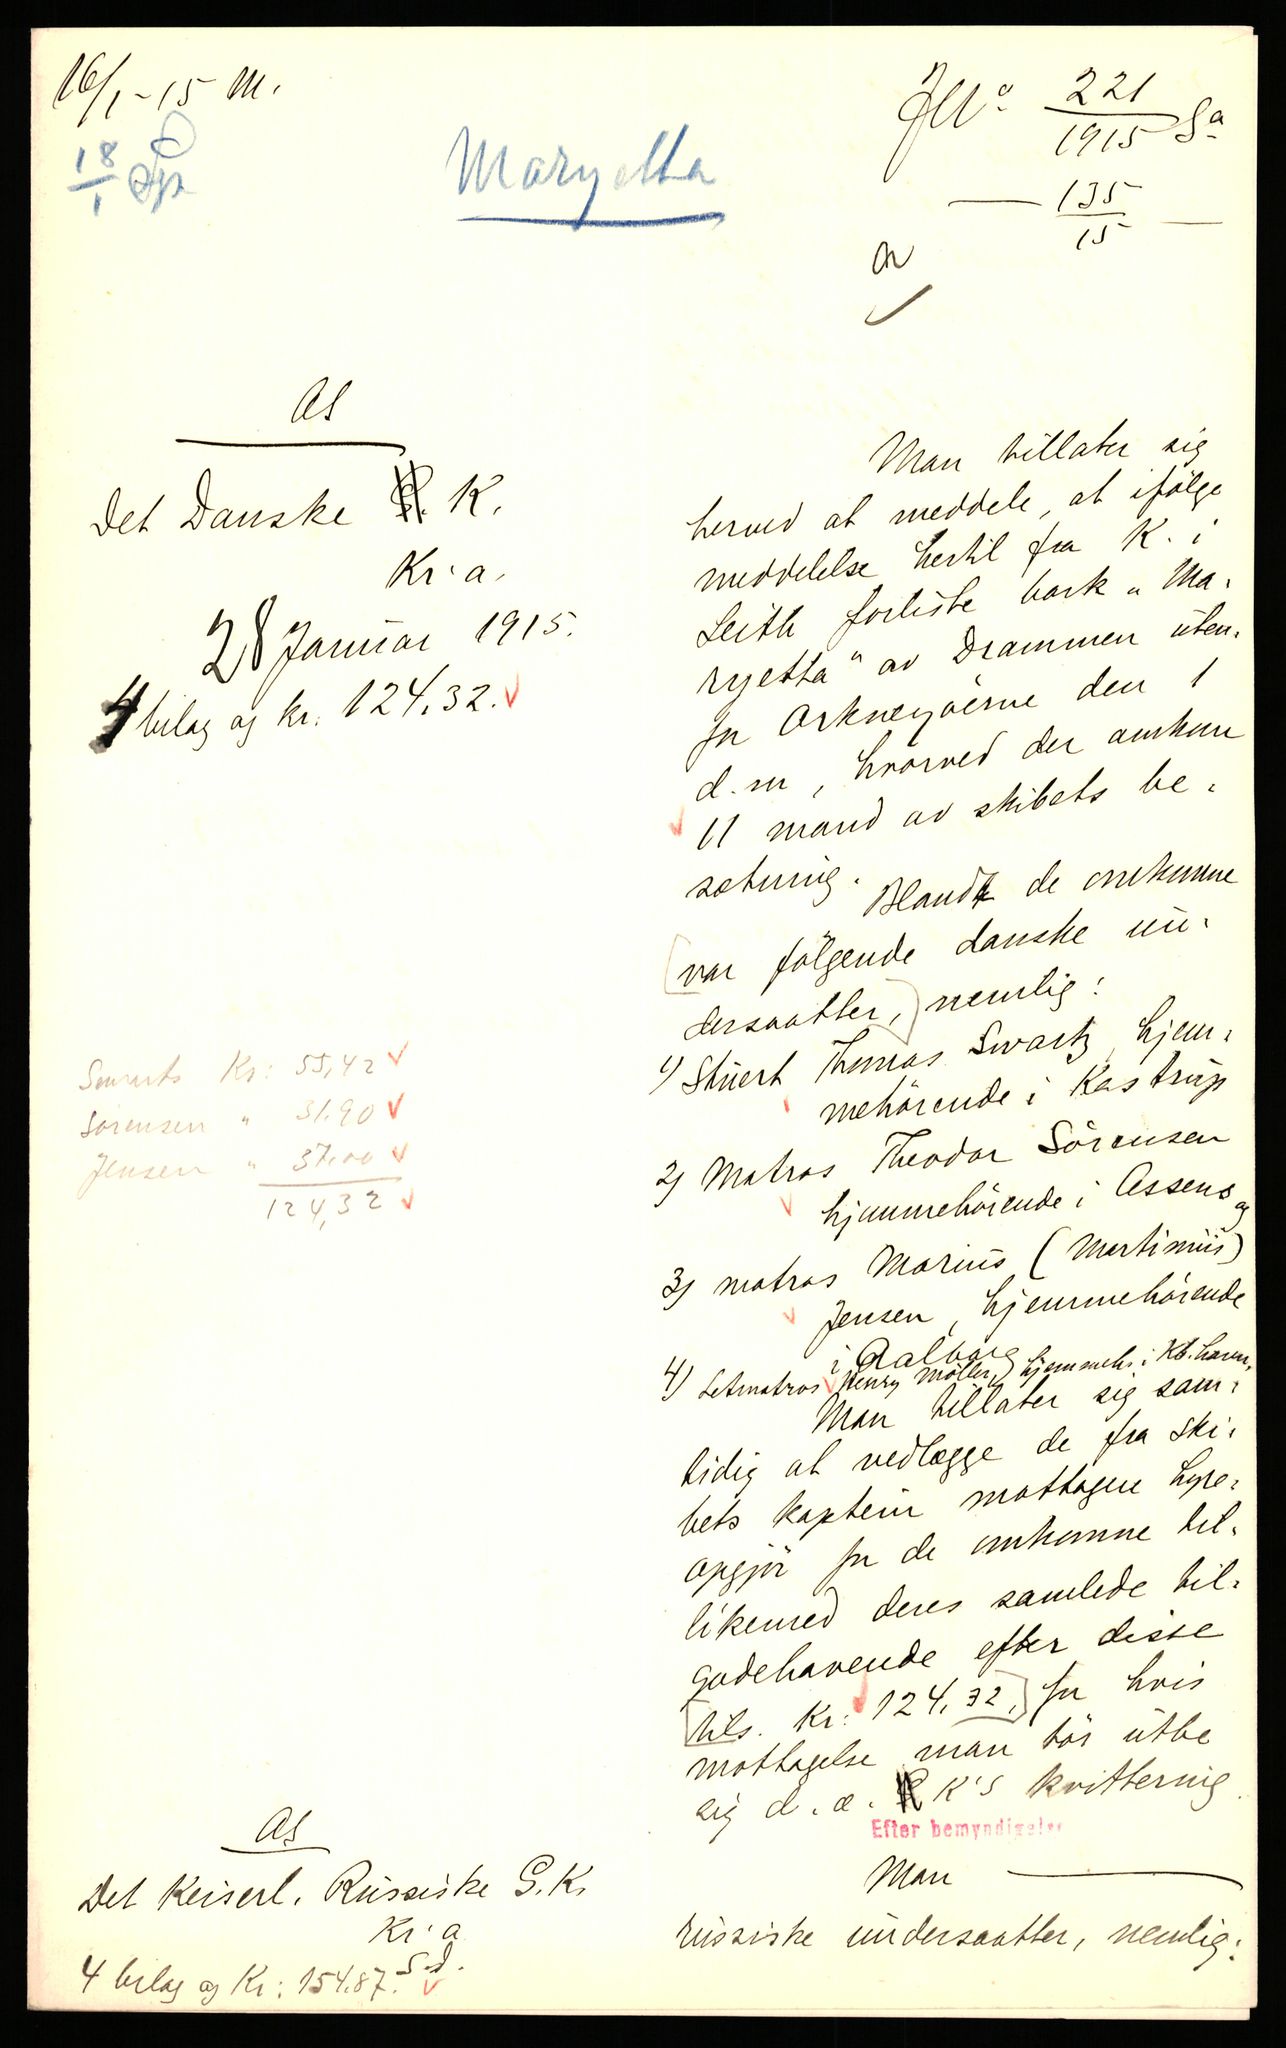 16/1-15 M.
18/1
Maryetta
JNo 221/1915 Sa
— 135/15 —
As
Det Danske K.
Kr: a.
28 Januar 1915.
4 bilag og kr. 124.32.
Man tillater sig
herved at meddele, at ifølge
meddelelse hertil fra K. i
Leith forliste bark "Ma-
ryetta" av Drammen uten-
for Orknøyøerne den 1
d.m, hvorved der omkom
11 mand av skibets be-
sætning.
Blandt de omkomne
(var følgende danske un-
dersaatter,) nemlig:
1) Stuert Thomas Swartz, hjem-
mehørende i Kastrup
2) Matros Theodor Sørensen
hjemmehørende i Assens og
3) matros Marius (Martinus)
Jensen, hjemmehørende
i Aalborg
4) Letmatros Henry Møller, hjemmeh. i Kb.havn.
Man tillater sig sam-
tidig at vedlægge de fra ski-
bets kaptein mottagne hyre-
opgjør for de omkomne til-
likemed deres samlede til-
godehavende efter disse
[tils. Kr: 124.32,] for hvis
mottagelse man tør utbe
sig d. æ. K's kvittering.
Efter bemyndigelse
Swarts Kr: 55,42
Sørensen " 31.90
Jensen " 37.00
124,32
As
Det Keiserl. Russiske G.K.
Kr: a
s.d.
4 bilag og Kr: 154.87.
Man —
russiske undersaatter, nemlig: